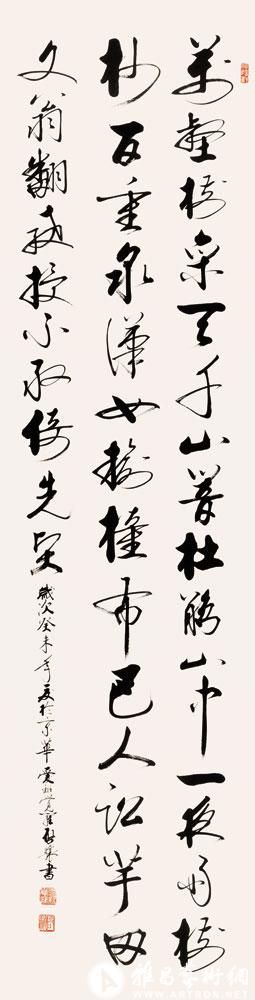 萬壑樹參天千山響杜鵑山中一夜雨樹
杪百重泉漢女輸橦布巴人訟芋田
文翁翻教授不敢倚先賢
歲次癸未年夏於京華愛新覺羅書
雅昌藝術網
ARTRON.NET